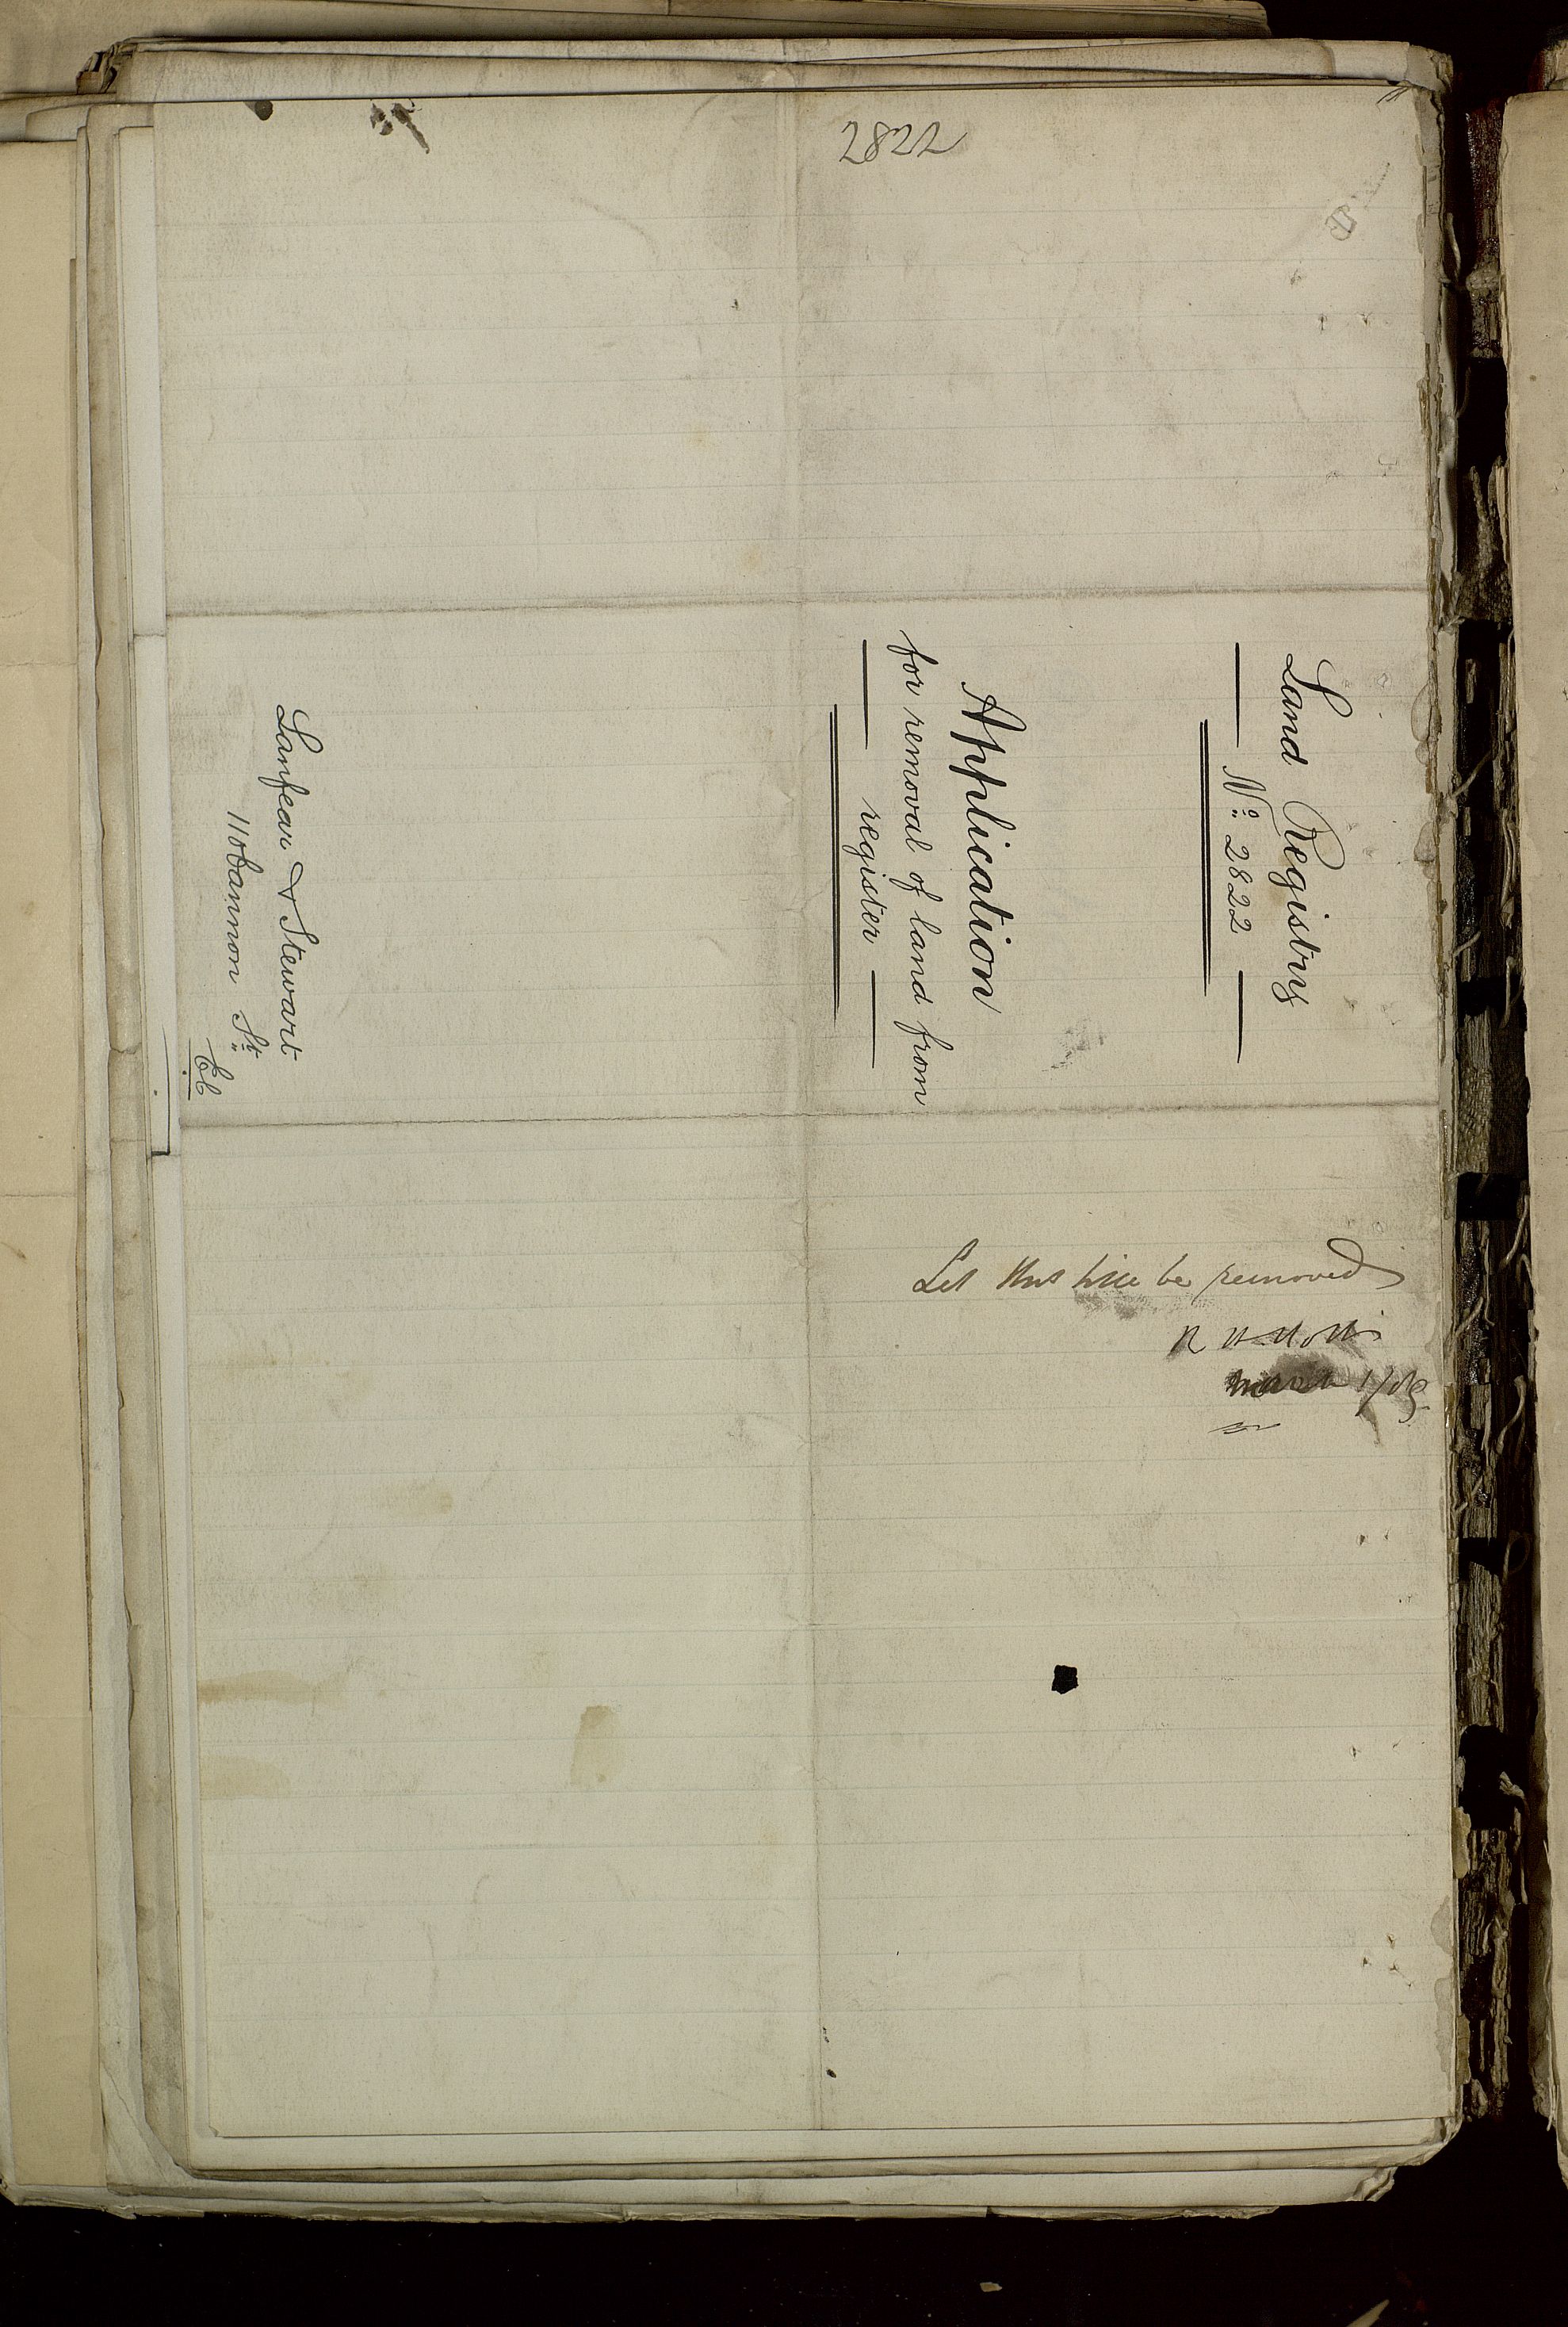 2822
Land Registry
No. 2822
Application
for removal of land from
register
Lanfear & Stewart
110 Cannon St.
EC
Let this title be removed
March